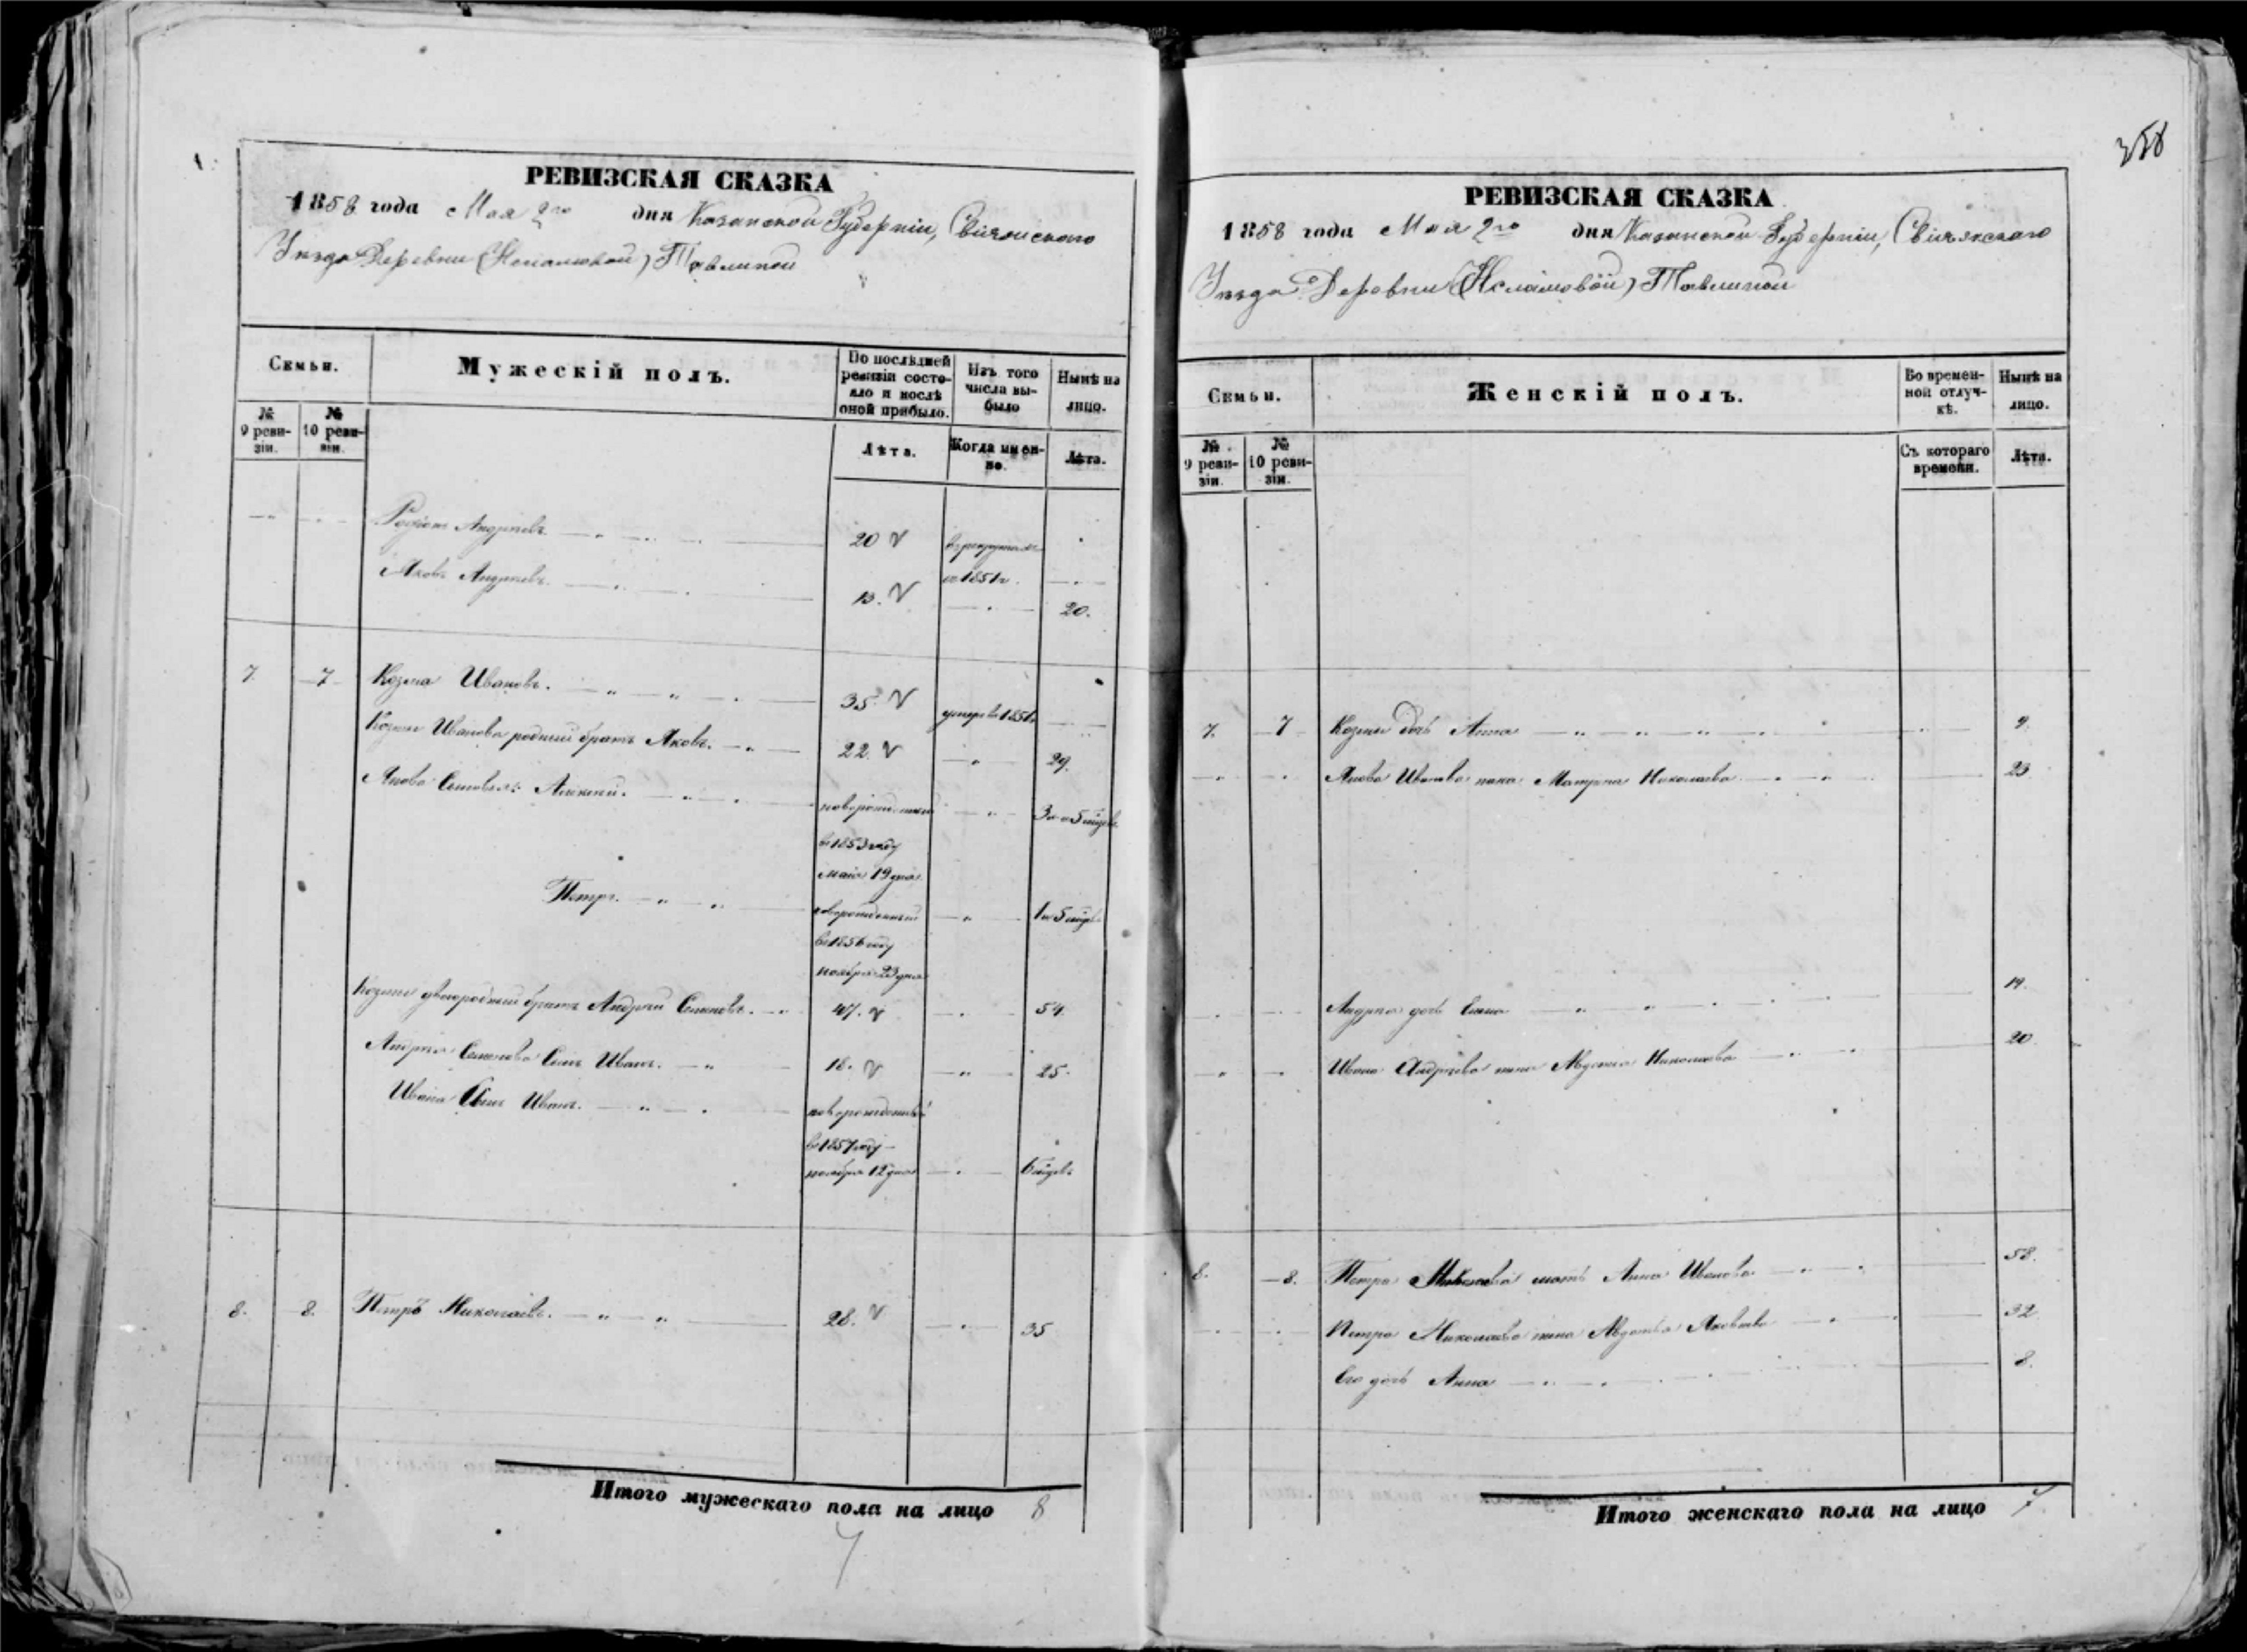 РЕВИЗСКАЯ СКАЗКА
1858 года Мая 2го дня Казанской Губерніи, Свіяжскаго
Уѣзда Деревни (Исламовой) Тавлиной
Семьи.
Мужескій полъ.
По послѣдней ревизіи состояло и послѣ оной прибыло.
Изъ того числа выбыло
Нынѣ на лицо.
№ 9 ревизіи.
№ 10 ревизіи.
Лѣта.
Когда именно.
Лѣта.
Андреевъ 20 въ рекрутахъ
съ 1851 г.
Яковъ Андреевъ 13. 20.
7. 7 Козма Ивановъ. 35. умеръ въ 1851
Козмы Иванова родный братъ Яковъ. 22. 29.
Якова Сыновья: Алексѣй. новорожденный 3 и 5 мѣсяц.
въ 1853 году
маія 19 дня
Петръ. новорожденный 1 и 5 мѣсяц.
въ 1856 году
ноября 23 дня
Козмы двоюродный братъ Андрей Семеновъ. 47. 54.
Андрея Семенова Сынъ Иванъ. 18. 25.
Ивана Сынъ Иванъ. новорожденный
въ 1857 году
ноября 12 дня 6 мѣсяц.
8. 8. Петръ Николаевъ. 28. 35
Итого мужескаго пола на лицо 8
7
358
РЕВИЗСКАЯ СКАЗКА
1858 года Мая 2го дня Казанской Губерніи, Свіяжскаго
Уѣзда Деревни (Исламовой) Тавлиной
Семьи.
Женскій полъ.
Во временной отлучкѣ.
Нынѣ на лицо.
№ 9 ревизіи.
№ 10 ревизіи.
Съ котораго времени.
Лѣта.
7. 7 Козмы дочь Анна 9.
Якова Иванова жена Матрена Николаева 23
Андрея дочь 19.
Ивана Андреева жена Авдотья Николаева 20.
8. 8. Петра Николаева мать Анна Иванова 58.
Петра Николаева жена Авдотья Яковлева 32
Его дочь Анна 8.
Итого женскаго пола на лицо 7